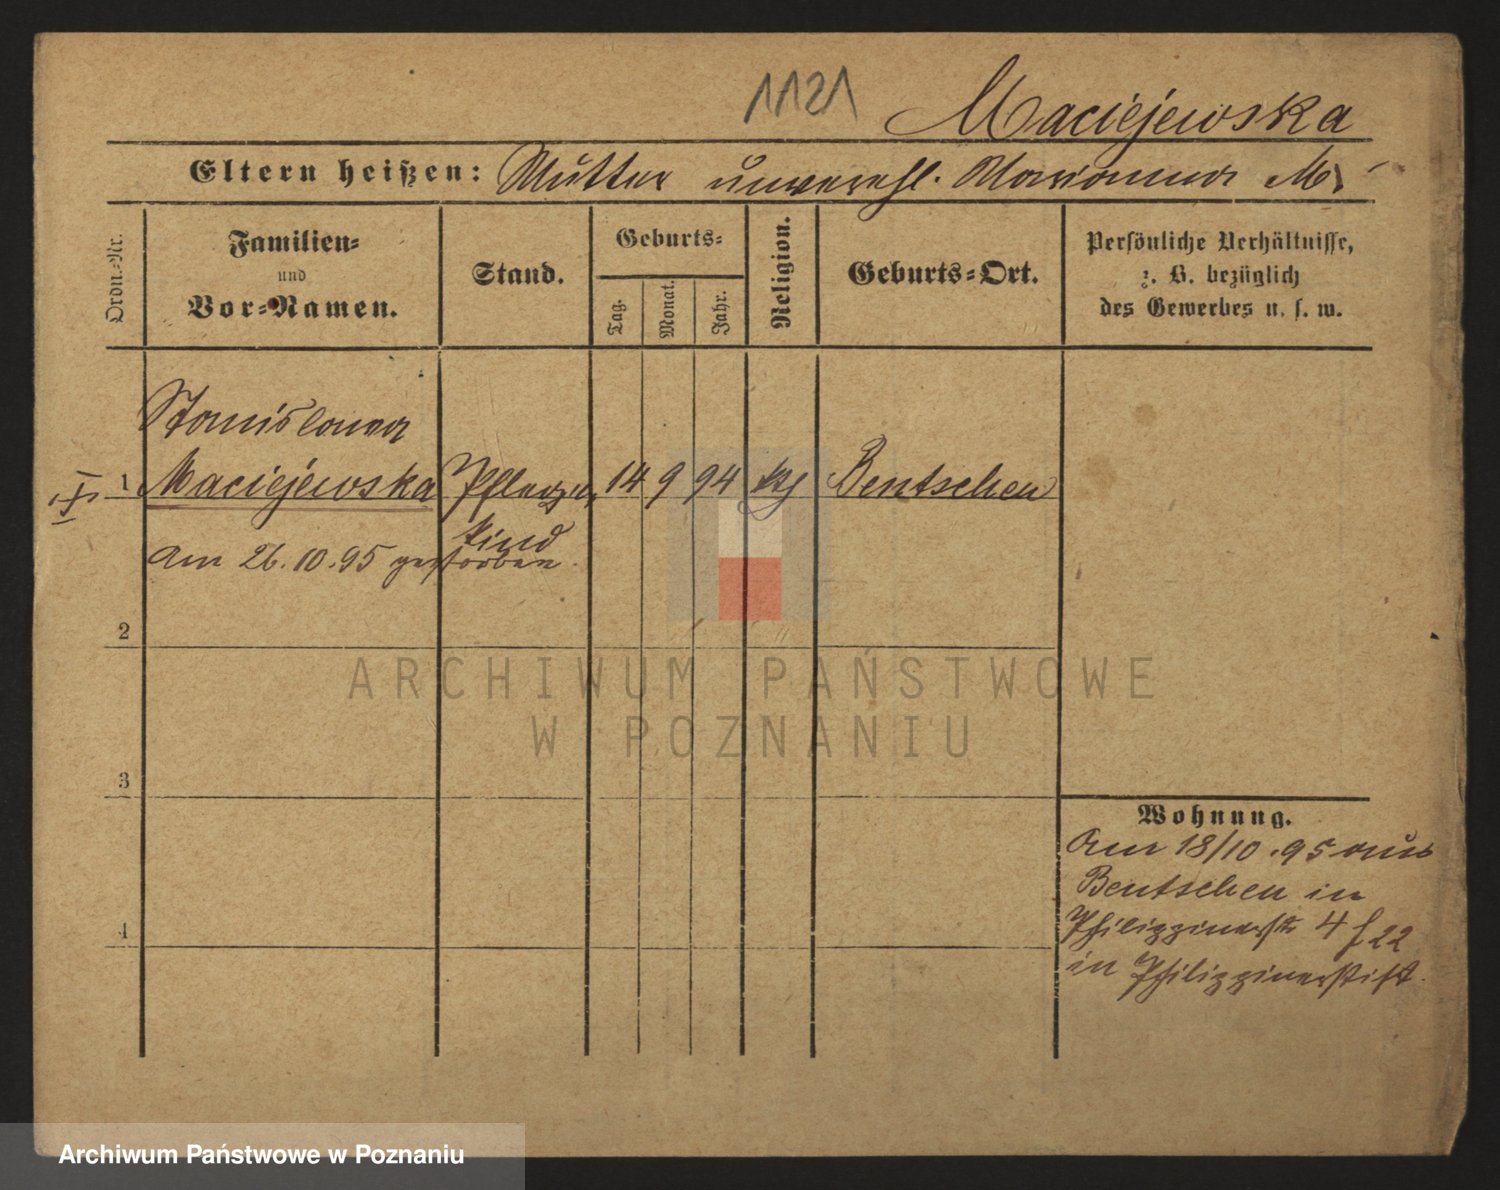 1121
Maciejewska
Eltern heißen: Mutter unverehl. Marianna M.
Ordn.-Nr.
Familien-
und
Vor-Namen.
Stand.
Geburts-
Tag.
Monat.
Jahr.
Religion.
Geburts-Ort.
Persönliche Verhältnisse,
z. B. bezüglich
des Gewerbes u. s. w.
Stanislawa
1 Maciejewska Pflege- 14 9 94 Bentschen
kind
am 26.10.95 gestorben.
2
3
4
Wohnung.
Am 18/10.95 aus
Bentschen in
Philippinerstr 4 22
in Philippinerstift.
ARCHIWUM PAŃSTWOWE
W POZNANIU
Archiwum Państwowe w Poznaniu